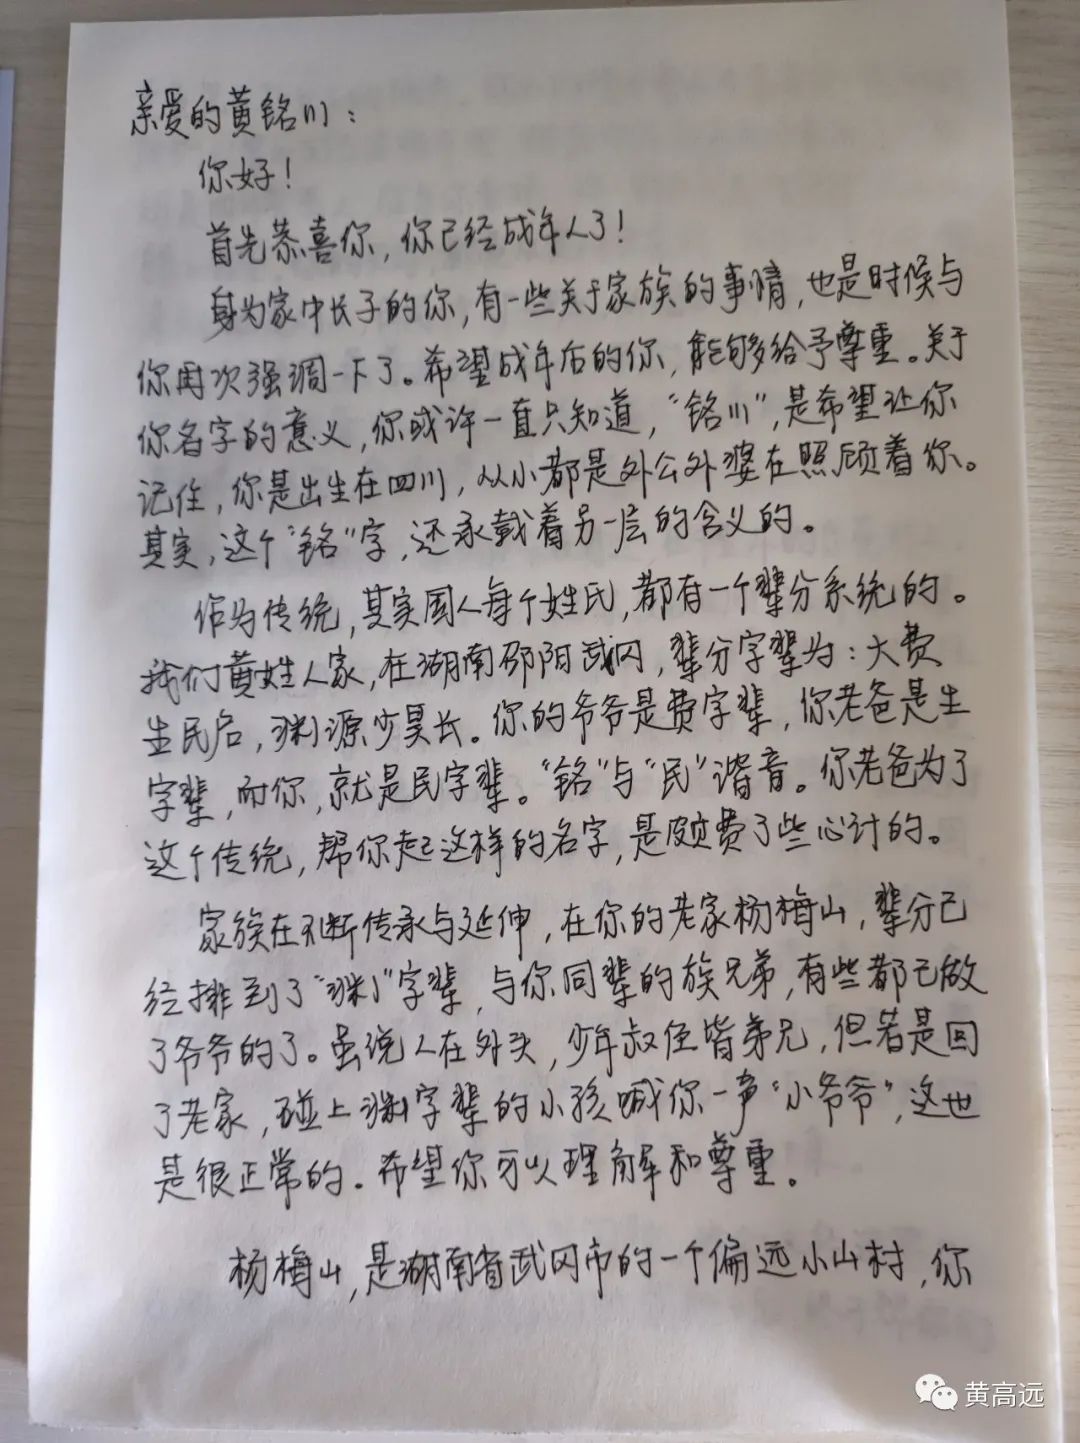 亲爱的黄铭川：
你好！
首先恭喜你，你已经成年人了！
身为家中长子的你，有一些关于家族的事情，也是时候与
你再次强调一下了。希望成年后的你，能够给予尊重。关于
你名字的意义，你或许一直只知道，“铭川”，是希望让你
记住，你是出生在四川，从小都是外公外婆在照顾着你。
其实，这个“铭”字，还承载着另一层的含义的。
作为传统，其实国人每个姓氏，都有一个辈分系统的。
我们黄姓人家，在湖南邵阳武冈，辈分字辈为：大费
生民启，渊源少昊长。你的爷爷是费字辈，你老爸是生
字辈，而你，就是民字辈。“铭”与“民”谐音。你老爸为了
这个传统，帮你起这样的名字，是颇费了些心计的。
家族在不断传承与延伸，在你的老家杨梅山，辈分已
经排到了“渊”字辈，与你同辈的族兄弟，有些都已做
了爷爷的了。虽说人在外头，少年叔侄皆弟兄，但若是回
了老家，碰上渊字辈的小孩喊你一声“小爷爷”，这也
是很正常的。希望你可以理解和尊重。
杨梅山，是湖南省武冈市的一个偏远小山村，你
黄高远